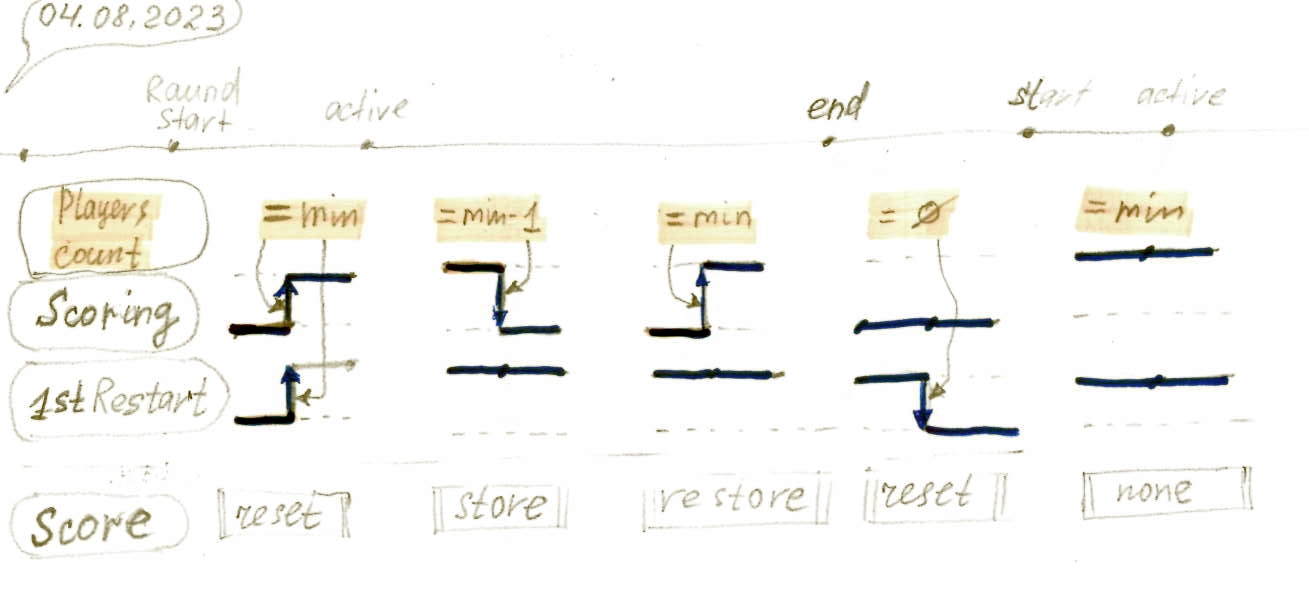 04.08.2023
Raund
start
active
end
start
active
Players
count
=min
=min-1
=min
=Ø
=min
Scoring
1st Restart
Score
reset
store
restore
reset
none